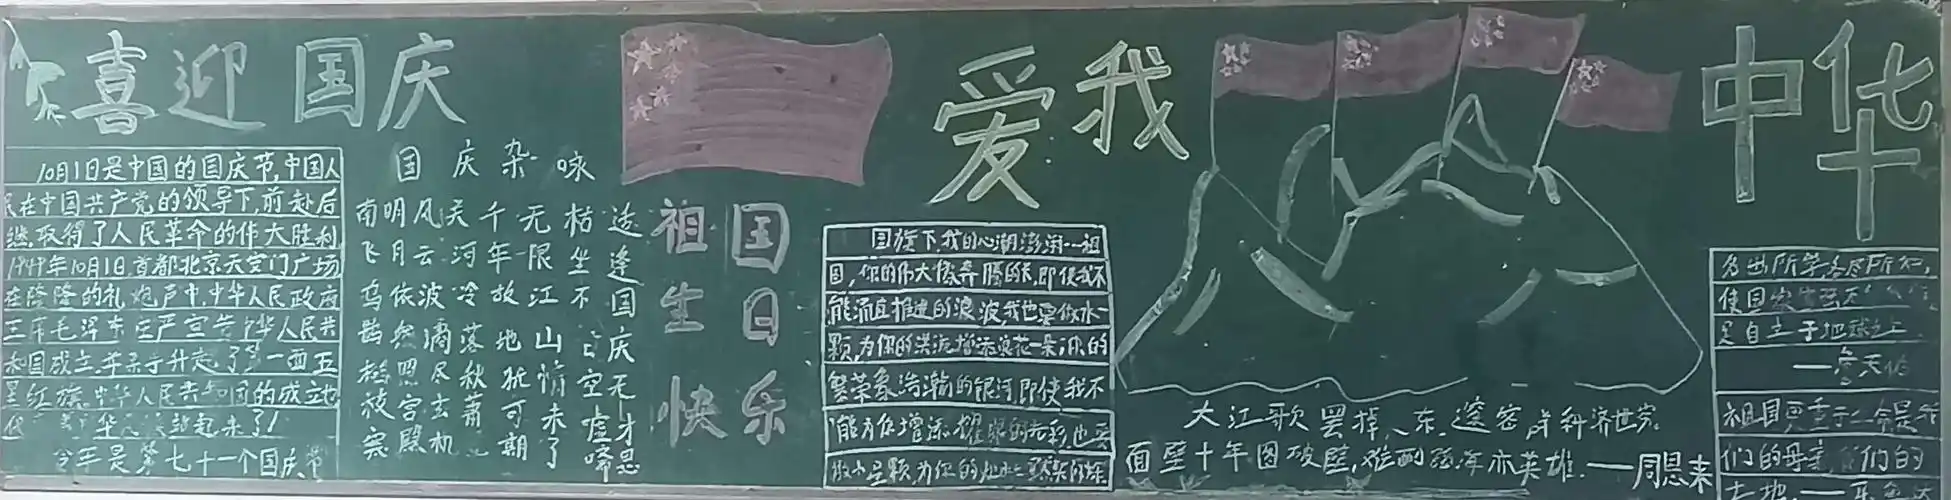 喜迎国庆
10月1日是中国的国庆节,中国人
民在中国共产党的领导下,前赴后
继,取得了人民革命的伟大胜利
1949年10月1日,首都北京天安门广场
在隆隆的礼炮声中,中华人民政府
主席毛泽东庄严宣告中华人民共
和国成立,并亲手升起了第一面五
星红旗.中华人民共和国的成立
起来了!
今年是第七十一个国庆节
国庆杂咏
适逢国庆无才思
枯坐不 空嘘唏
无限江山情未了
千年故地犹可期
天河冷落秋萧
风云波滴尽玄机
明月依然照宫殿
南飞乌鹊 被寒
祖国
生日
快乐
爱我
中华
国旗下我的心潮澎湃--祖
国,你的伟大像奔腾的 ,即使我不
能流直推进的浪波,我也要做水一
颗,为你的洪流增添浪花一朵,你的
繁荣象浩瀚的银河,即使我不
能为你增添耀眼的光彩,也要
做小星一颗,为你的
大江歌罢掉头东,邃密群科济世穷.
面壁十年图破壁,难酬蹈海亦英雄.——周恩来
各出所学,各尽所知,
使国家富强不
足自立于地球之上.
——詹天佑
祖国更重于生命,是我
们的母亲,我们的